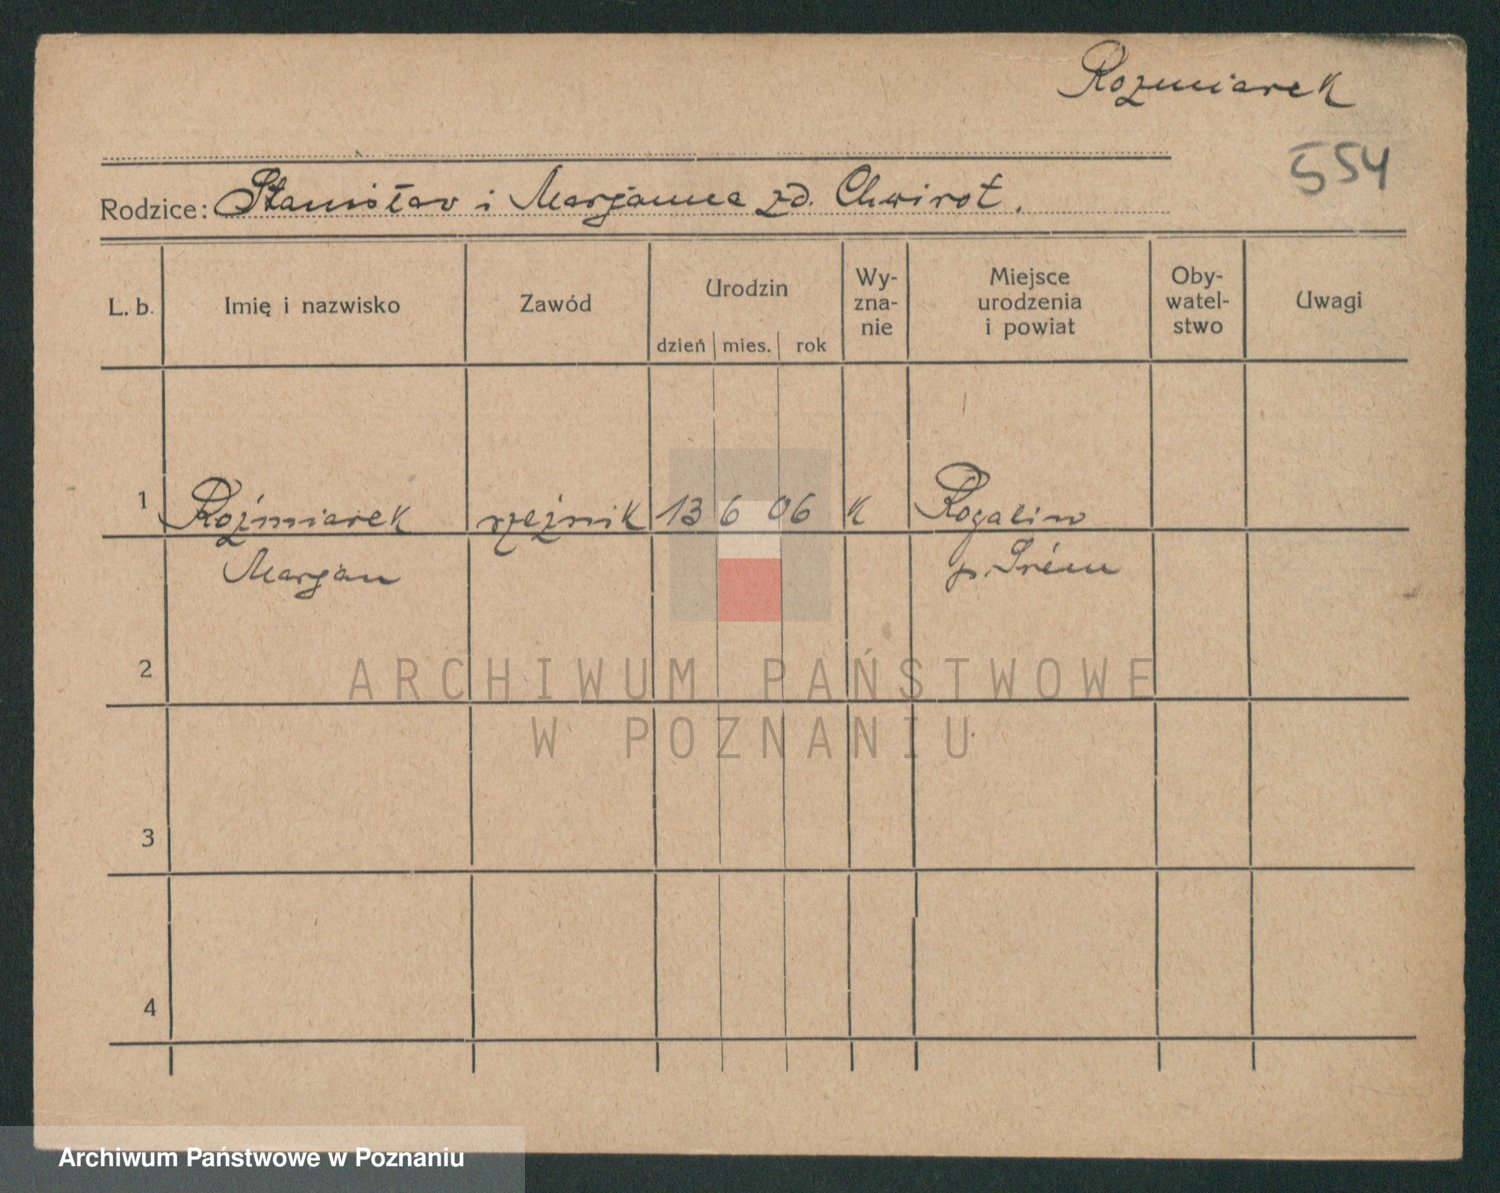 Rozmiarek
554
Rodzice: Stanisław i Marjanna zd. Chwirot.
L. b. Imię i nazwisko Zawód Urodzin dzień mies. rok Wy-zna-nie Miejsce urodzenia i powiat Oby-watel-stwo Uwagi
1 Roźmiarek rzeźnik 13 6 06 k Rogalin
Marjan p. Śrém
2
ARCHIWUM PAŃSTWOWE
W POZNANIU
3
4
Archiwum Państwowe w Poznaniu